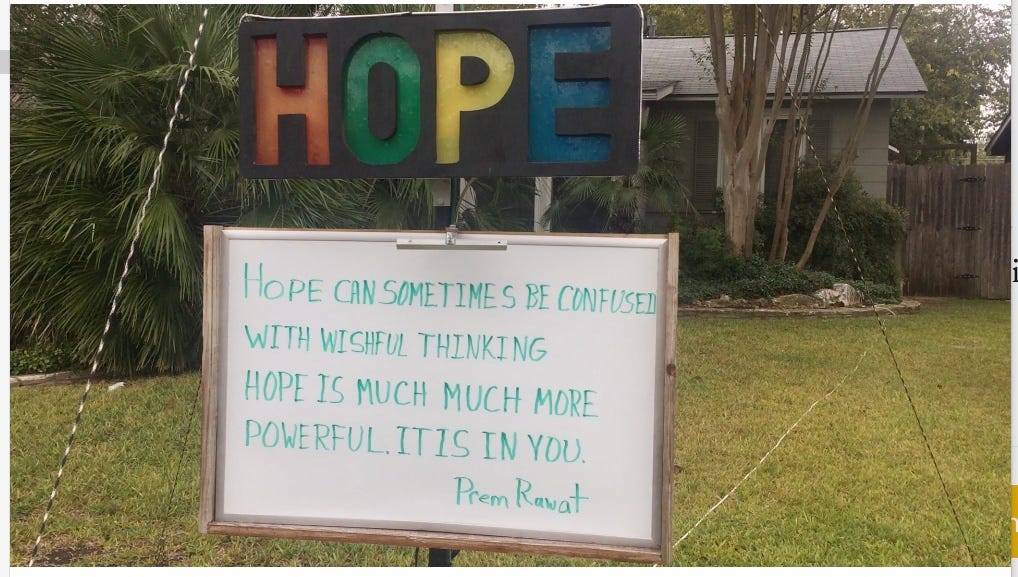 HOPE
HOPE CAN SOMETIMES BE CONFUSED
WITH WISHFUL THINKING
HOPE IS MUCH MUCH MORE
POWERFUL. IT IS IN YOU.
Prem Rawat